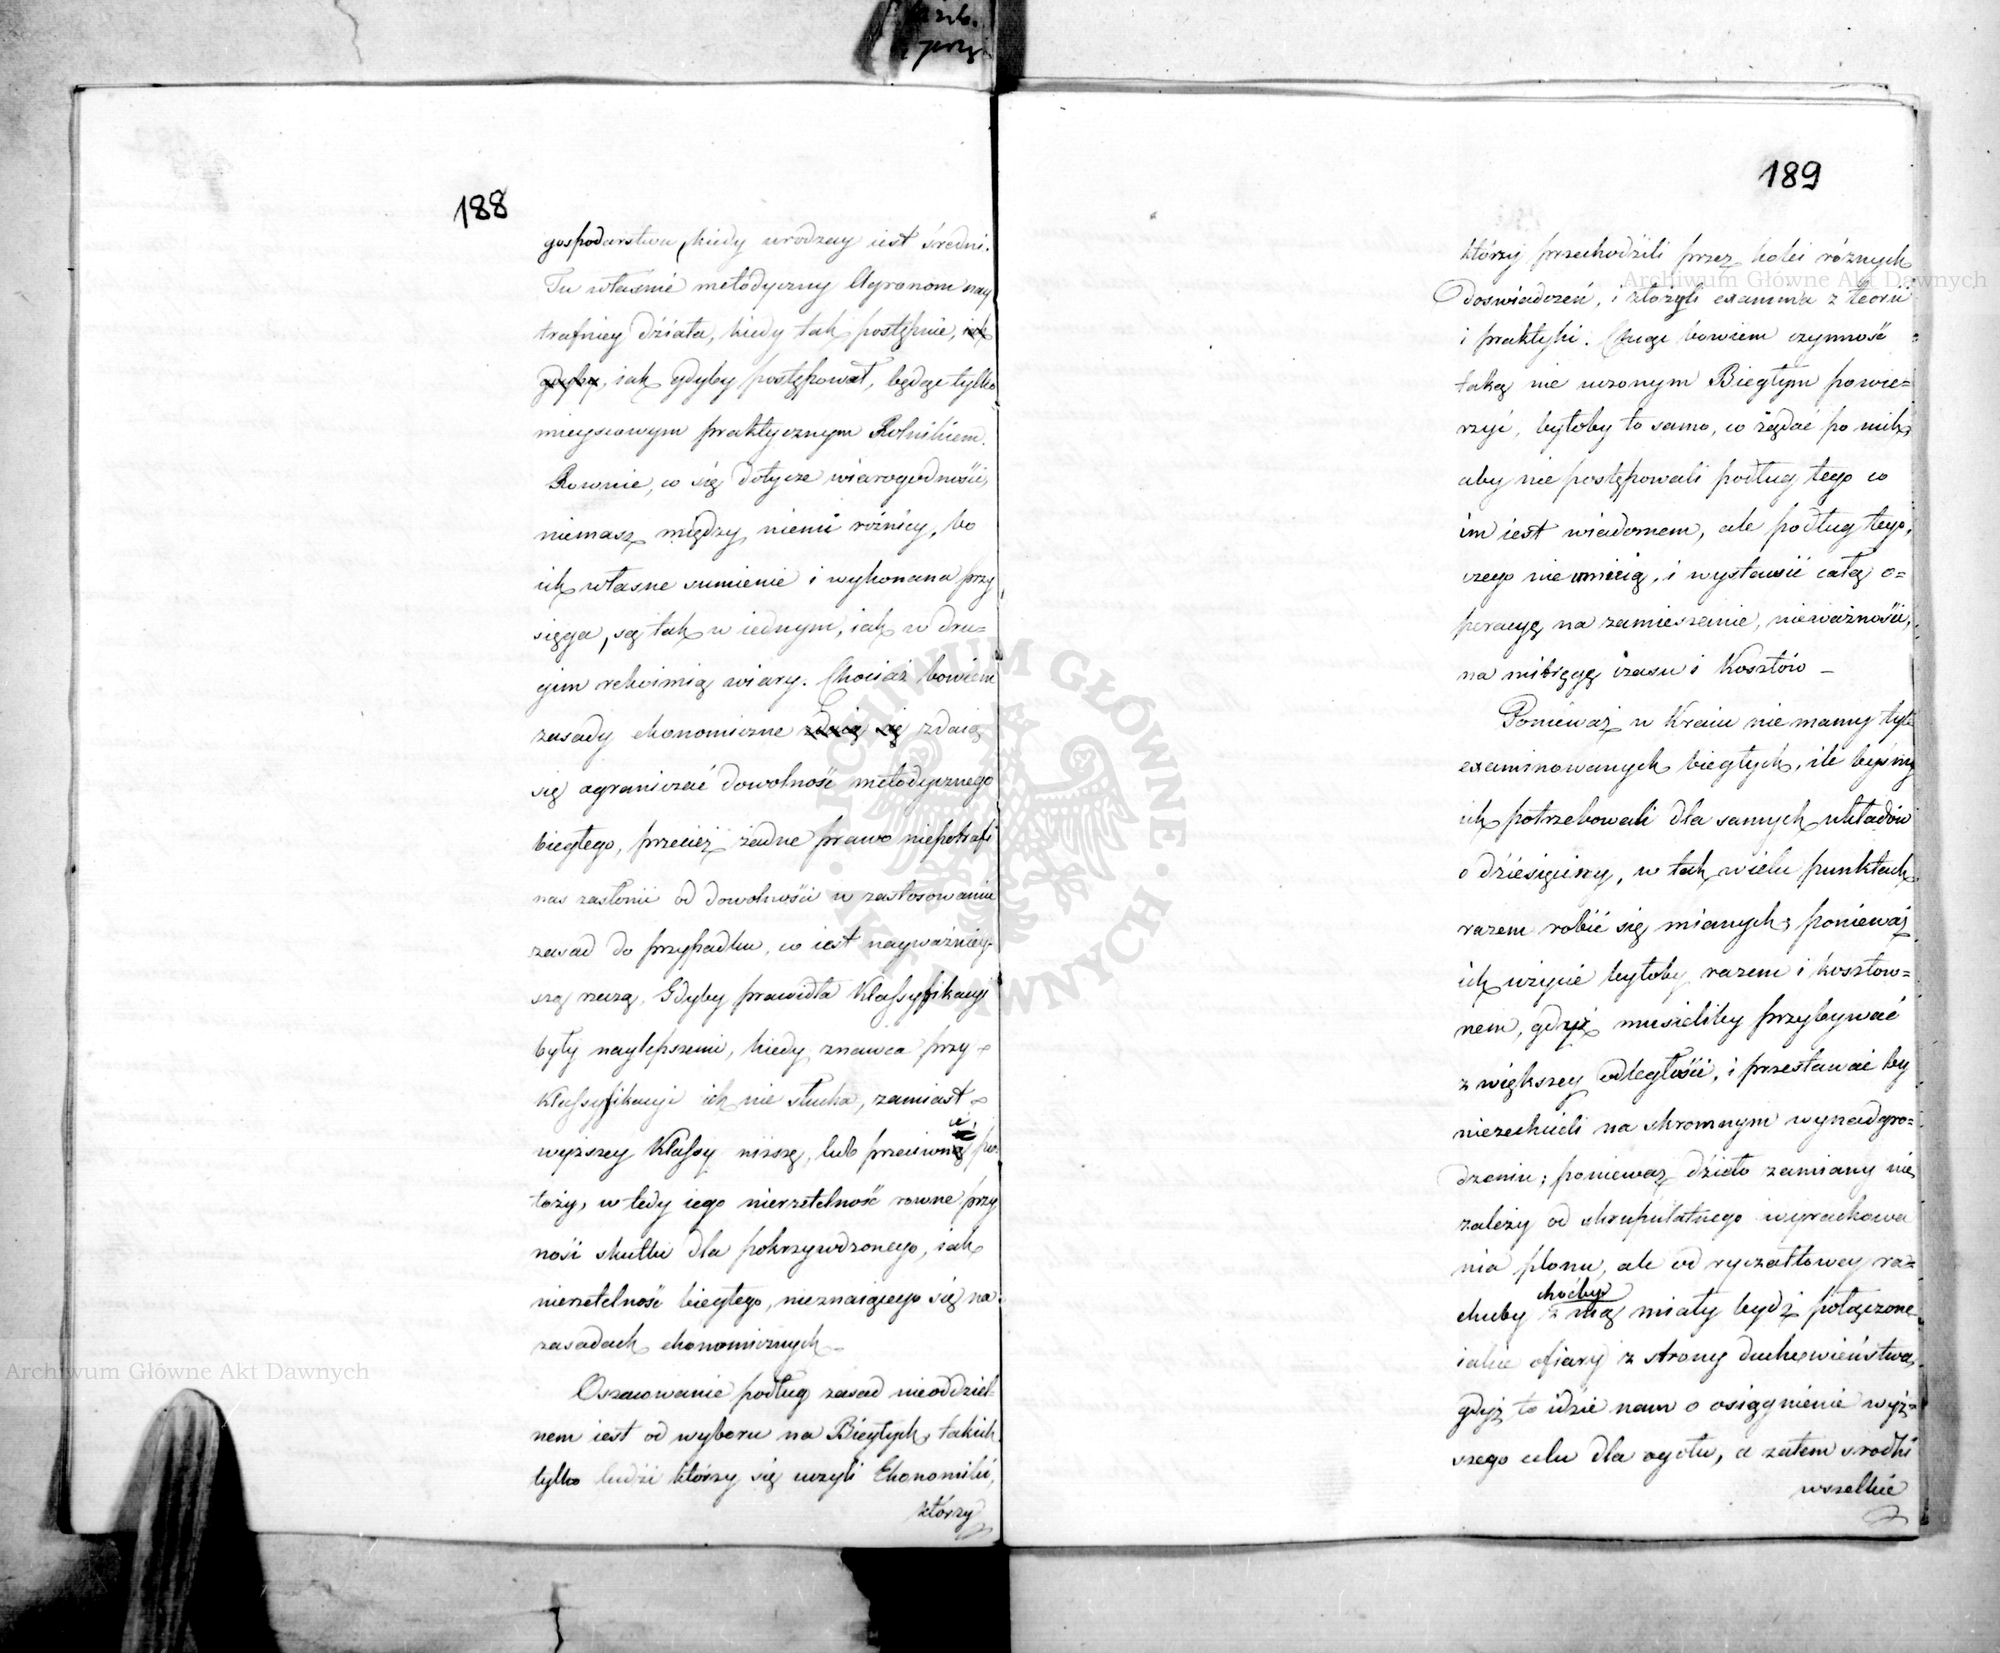 188
gospodarstwa, kiedy urodzay iest średni.
Tu właśnie metodyczny Agronom nay
trafniey działa, kiedy tak postępuie, iak
gdyby, iak gdyby postępował, będąc tylko
mieyscowym praktycznym Rolnikiem.
Rownie, co się dotycze wiarogodności,
niemasz między niemi różnicy, bo
ich własne sumienie i wykonana przy
sięga, są tak w iednym, iak w dru=
gim rękoimią wiary. Chociaż bowiem
zasady ekonomiczne zdaią się zdaią
się ograniczać dowolność metodycznego
biegłego, przecież żadne prawo niepotrafi
nas zasłonić od dowolności w zastosowaniu
zasad do przypadku, co iest nayważniey-
szą rzeczą. Gdyby prawidła Klassyfikacyi
były naylepszemi, kiedy znawca przy
Klassyfikacyi ich nie słucha, zamiast
wyższey Klassy niższą, lub przeciwnie po-
łoży, w tedy iego nierzetelność rowne przy
nosi skutki dla pokrzywdzonego, iak
nierzetelność biegłego, nieznaiącego się na
zasadach ekonomicznych.
Oszacowanie podług zasad nieoddziel-
nem iest od wyboru na Biegłych, takich
tylko ludzi którzy się uczyli Ekonomiki,
którzy
189
którzy przechodzili przez koleie różnych
doswiadczeń, i złożyli examina z teorii
i praktyki. Chcąc bowiem czynność
taką nie uczonym Biegłym powie=
rzyć, byłoby to samo, co żądać po nich,
aby nie postępowali podług tego co
im iest wiadomem, ale podług tego,
czego nie umieią, i wystawić całą o=
peracyę na zamieszanie, nieważności,
na mitręgę czasu i Kosztów –
Ponieważ w Kraiu nie mamy tyle
examinowanych biegłych, ile byśmy
ich potrzebowali dla samych układów
o dziesięciny, w tak wielu punktach
razem robić się mianych, ponieważ
ich użycie byłoby razem i kosztow=
nem, gdyż musieliby przybywać
z większey odległości, i przestawać by
niezechcieli na skromnym wynadgro=
dzeniu; ponieważ dzieło zamiany nie
zależy od skrupulatnego wyrachowa
nia plonu, ale od ryczałtowey ra=
choćby
chuby z nią miały bydź połączone
iakie ofiary z strony duchowieństwa,
gdyż to idzie nam o osiągnienie wyż=
szego celu dla ogółu, a zatem srodki
wszelkie
Archiwum Główne Akt Dawnych
Archiwum Główne Akt Dawnych
ARCHIWUM GŁÓWNE AKT DAWNYCH